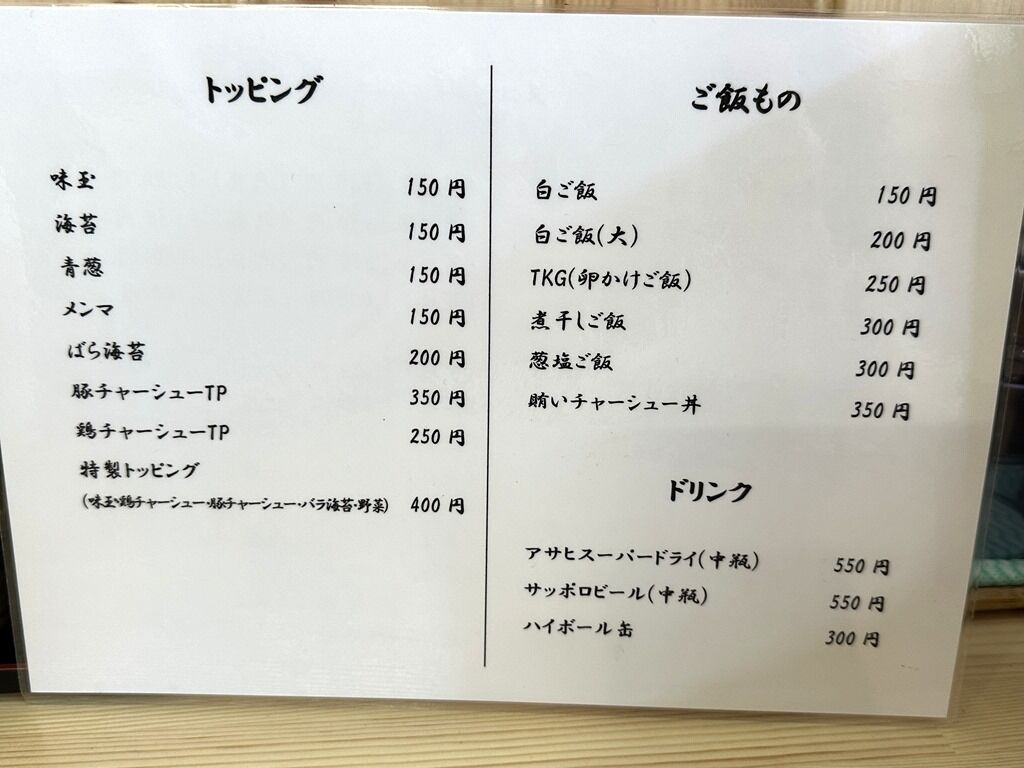 トッピング
味玉 150円
海苔 150円
青葱 150円
メンマ 150円
ばら海苔 200円
豚チャーシューTP 350円
鶏チャーシューTP 250円
特製トッピング
(味玉・鶏チャーシュー・豚チャーシュー・バラ海苔・野菜) 400円
ご飯もの
白ご飯 150円
白ご飯(大) 200円
TKG(卵かけご飯) 250円
煮干しご飯 300円
葱塩ご飯 300円
賄いチャーシュー丼 350円
ドリンク
アサヒスーパードライ(中瓶) 550円
サッポロビール(中瓶) 550円
ハイボール缶 300円